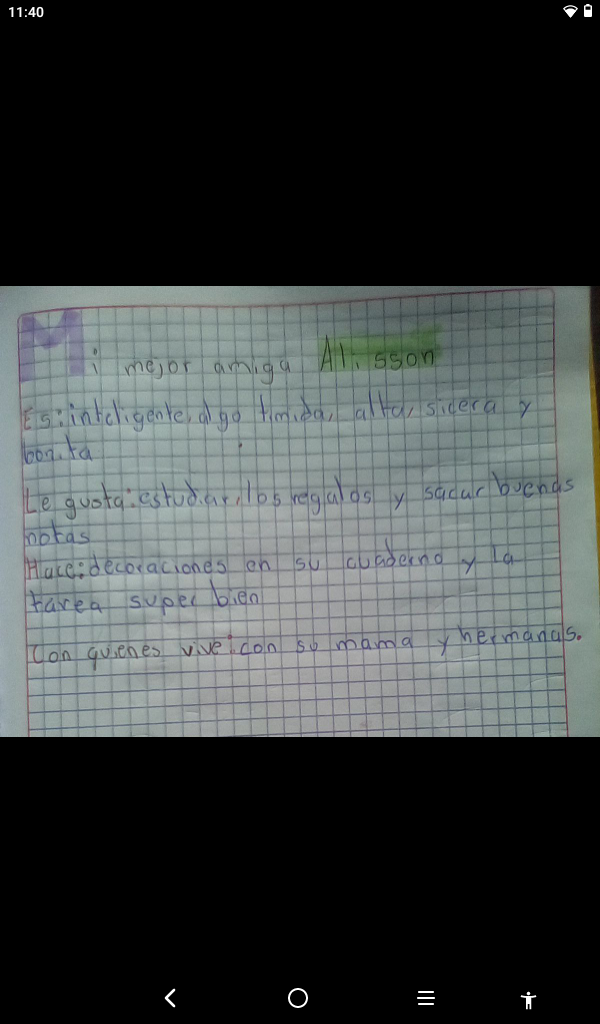 11:40
Mi mejor amiga Alisson
Es: inteligente, algo timida, alta, sicera y
bonita
Le gusta: estudiar, los regalos y sacar buenas
notas
Hace: decoraciones en su cuaderno y la
tarea super bien
Con quienes vive: con su mama y hermanas.